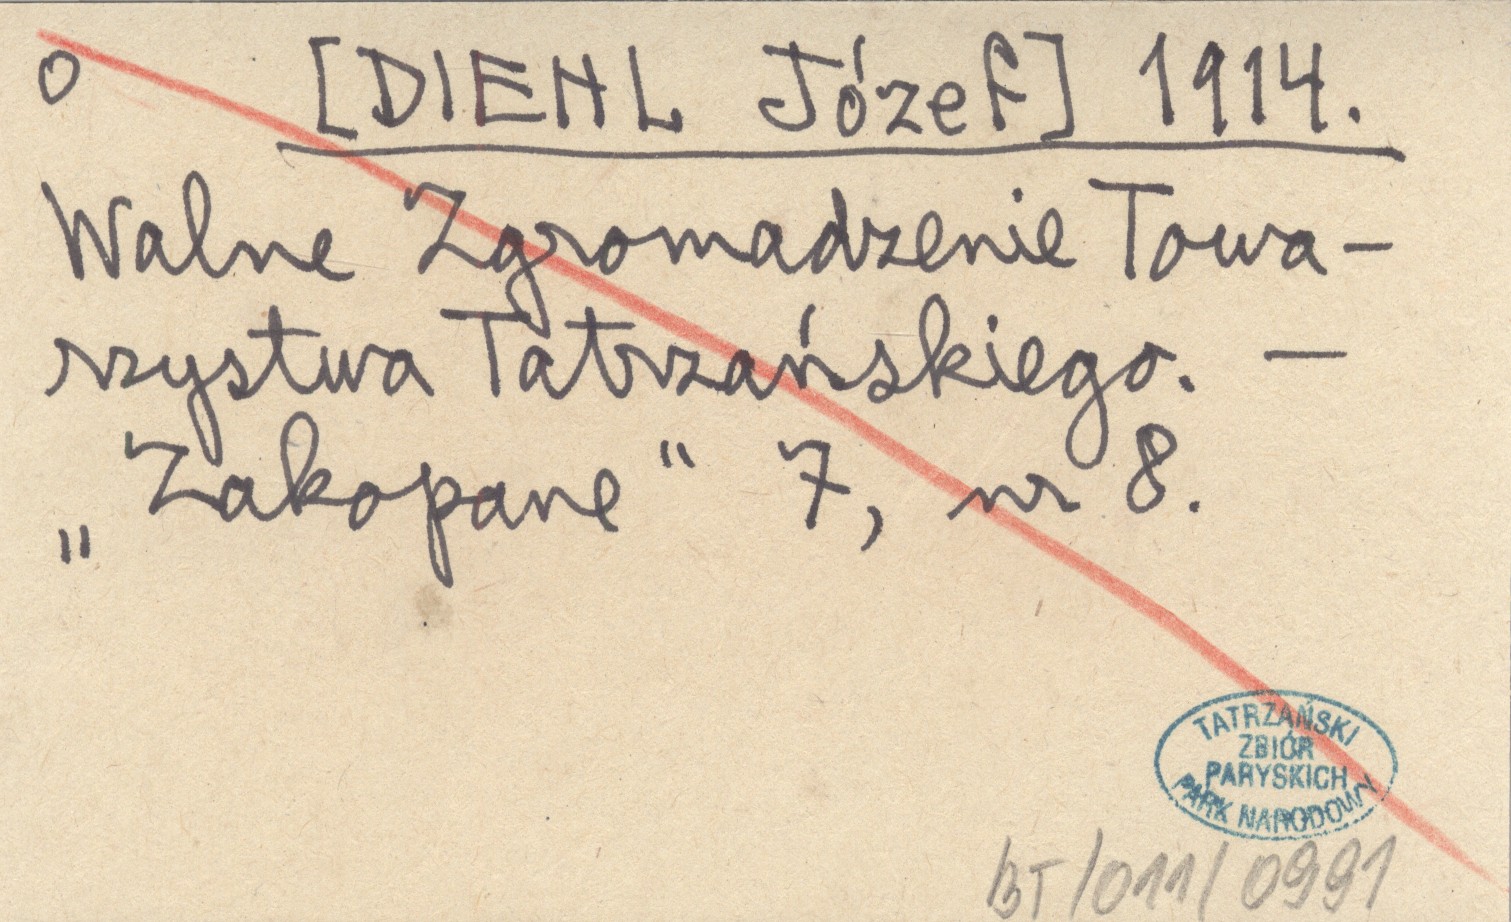 o [DIEHL Józef] 1914.
Walne Zgromadzenie Towa-
rzystwa Tatrzańskiego. —
„Zakopane“ 7, nr 8.
TATRZAŃSKI
ZBIÓR
PARYSKICH
PARK NARODOWY
BT/011/0991